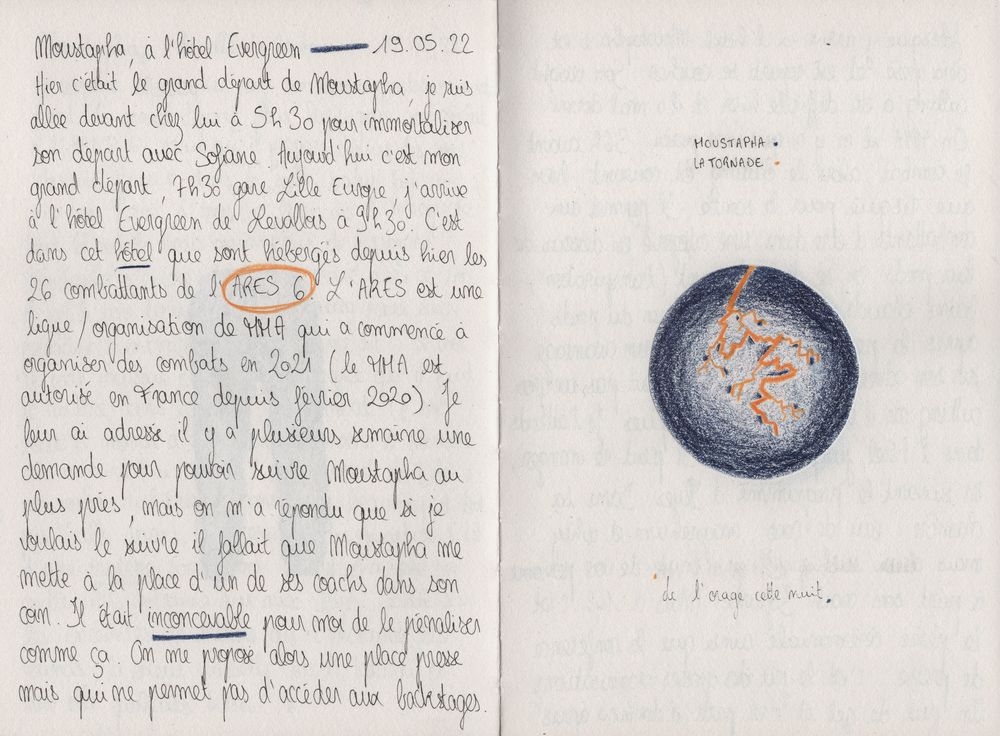 Moustapha, à l'hôtel Evergreen — 19.05.22
Hier c'était le grand départ de Moustapha, je suis
allée devant chez lui à 5h30 pour immortaliser
son départ avec Sofiane. Aujourd'hui c'est mon
grand départ, 7h30 gare Lille Europe, j'arrive
à l'hôtel Evergreen de Levallois à 9h30. C'est
dans cet hôtel que sont hébergés depuis hier les
26 combattants de l'ARES 6. L'ARES est une
ligue/organisation de MMA qui a commencé à
organiser des combats en 2021 (le MMA est
autorisé en France depuis février 2020). Je
leur ai adressé il y a plusieurs semaine une
demande pour pouvoir suivre Moustapha au
plus près, mais on m'a répondu que si je
voulais le suivre il fallait que Moustapha me
mette à la place d'un de ses coachs dans son
coin. Il était inconcevable pour moi de le pénaliser
comme ça. On me propose alors une place presse
mais qui ne permet pas d'accéder aux backstages.
MOUSTAPHA
LA TORNADE
de l'orage cette nuit.